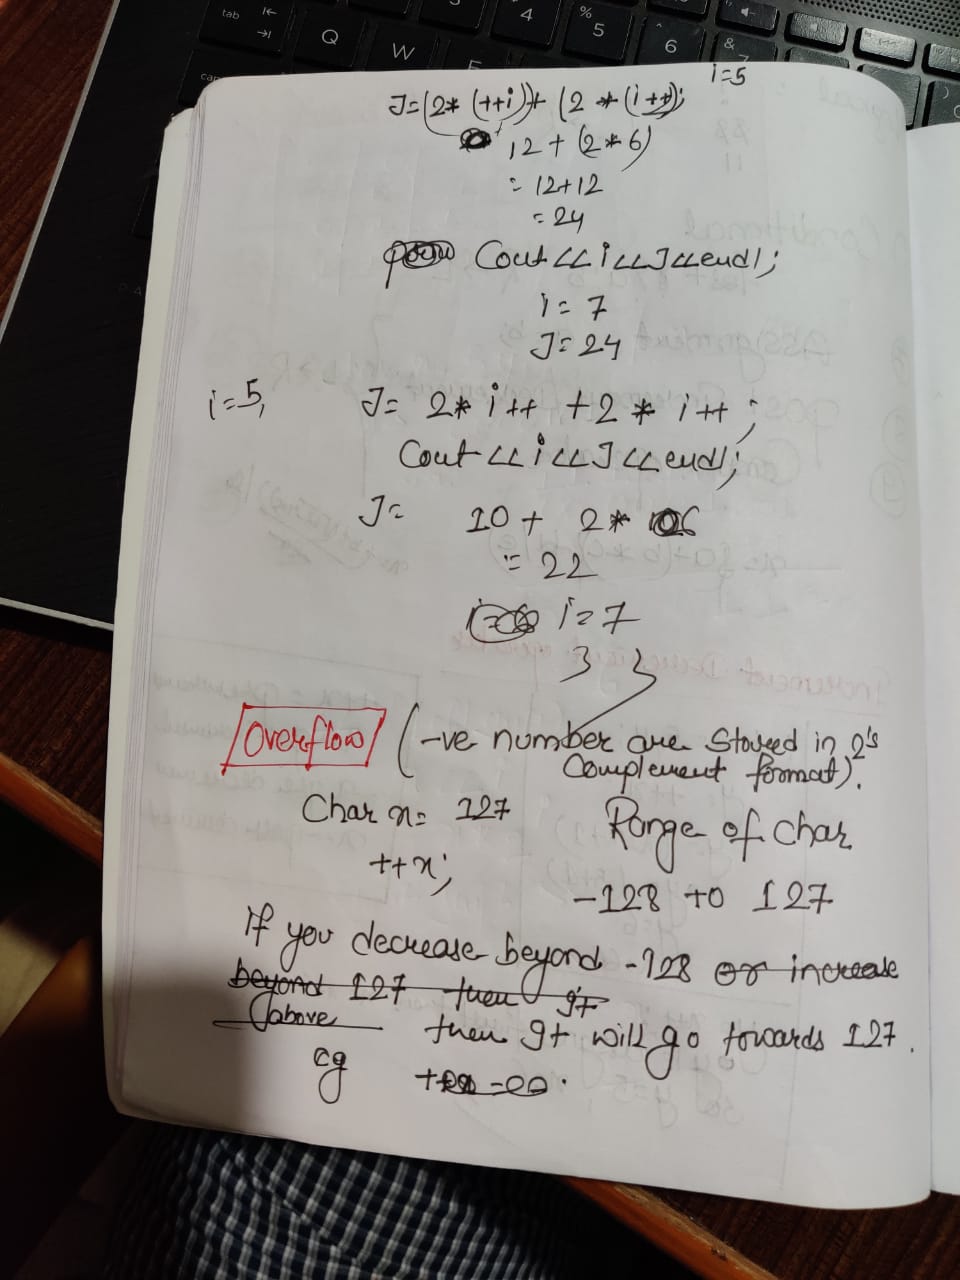 tab
Q
W
4
%
5
6
&
i=5
J=(2*(++i))+(2*(i++));
12+(2*6)
= 12+12
= 24
Cout<<i<<J<<endl;
i= 7
J= 24
i=5,
J= 2* i++ +2* i++;
Cout<<i<<J<<endl;
J=
10+ 2* 6
= 22
i=7
Overflow
(-ve number are stored in 2's
Complement format).
Char x= 127
Range of char
++x;
-128 to 127
If you decrease beyond -128 or increase
beyond 127 then it
above
then It will go towards 127.
eg